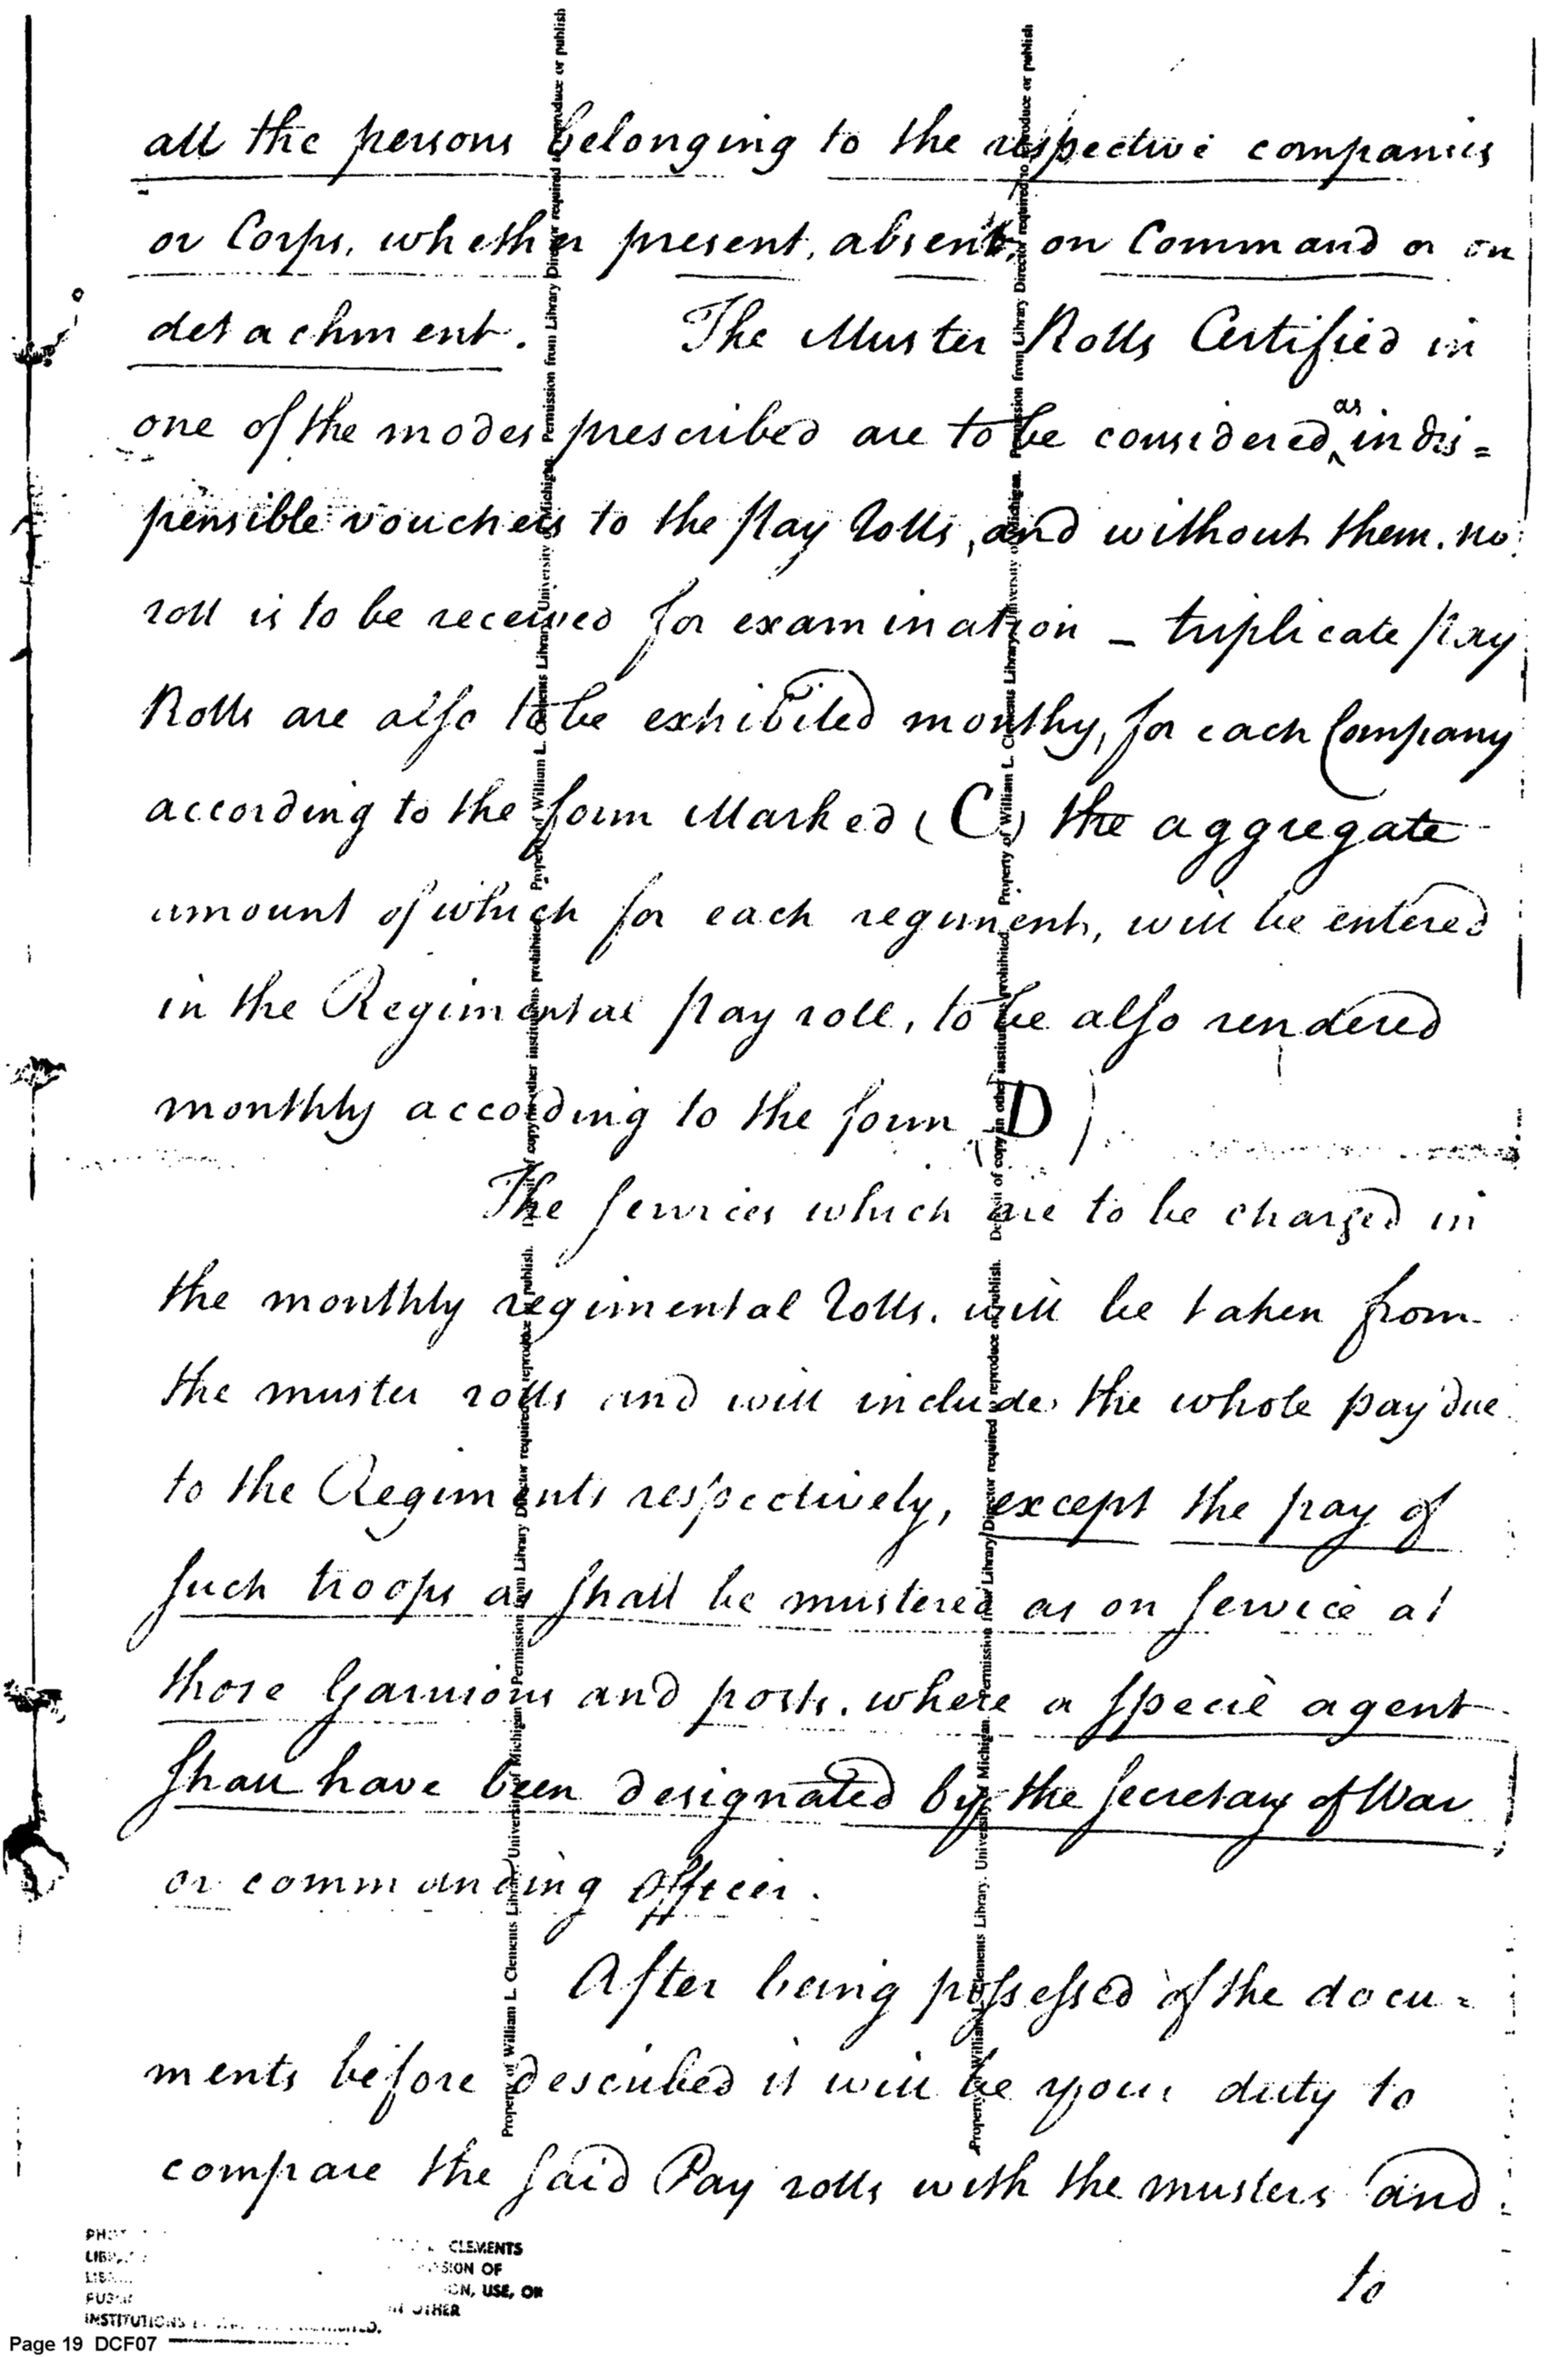 all the persons belonging to the respective companies
or Corps, whether present, absent, on Command or on
detachment. The Muster Rolls Certified in
one of the modes prescribed are to be considered as indis=
pensible vouchers to the Pay Rolls, and without them. no
roll is to be received for examination – triplicate Pay
Rolls are also to be exhibited monthy, for each Company
according to the form Marked (C) the aggregate
amount of which for each regiment, will be entered
in the Regimental Pay roll, to be also rendered
monthly according to the form (D)
The services which are to be charged in
the monthly regimental Rolls. will be taken from
the muster rolls and will include the whole pay due
to the Regiments respectively, except the pay of
such troops as shall be mustered as on service at
those Garrisons and posts. where a specie agent
shall have been designated by the Secretary of War
or commanding officer.
After being possessed of the docu=
ments before described it will be your duty to
compare the said Pay rolls with the musters and
to
Property of William L. Clements Library, University of Michigan. Permission from Library Director required to reproduce or publish. Deposit of copy in other institutions prohibited.
Property of William L. Clements Library, University of Michigan. Permission from Library Director required to reproduce or publish
Property of William L. Clements Library, University of Michigan. Permission from Library Director required to reproduce or publish. Deposit of copy in other institutions prohibited.
Property of William L. Clements Library, University of Michigan. Permission from Library Director required to reproduce or publish
CLEMENTS
OF
USE, OR
OTHER
INSTITUTIONS
Page 19 DCF07